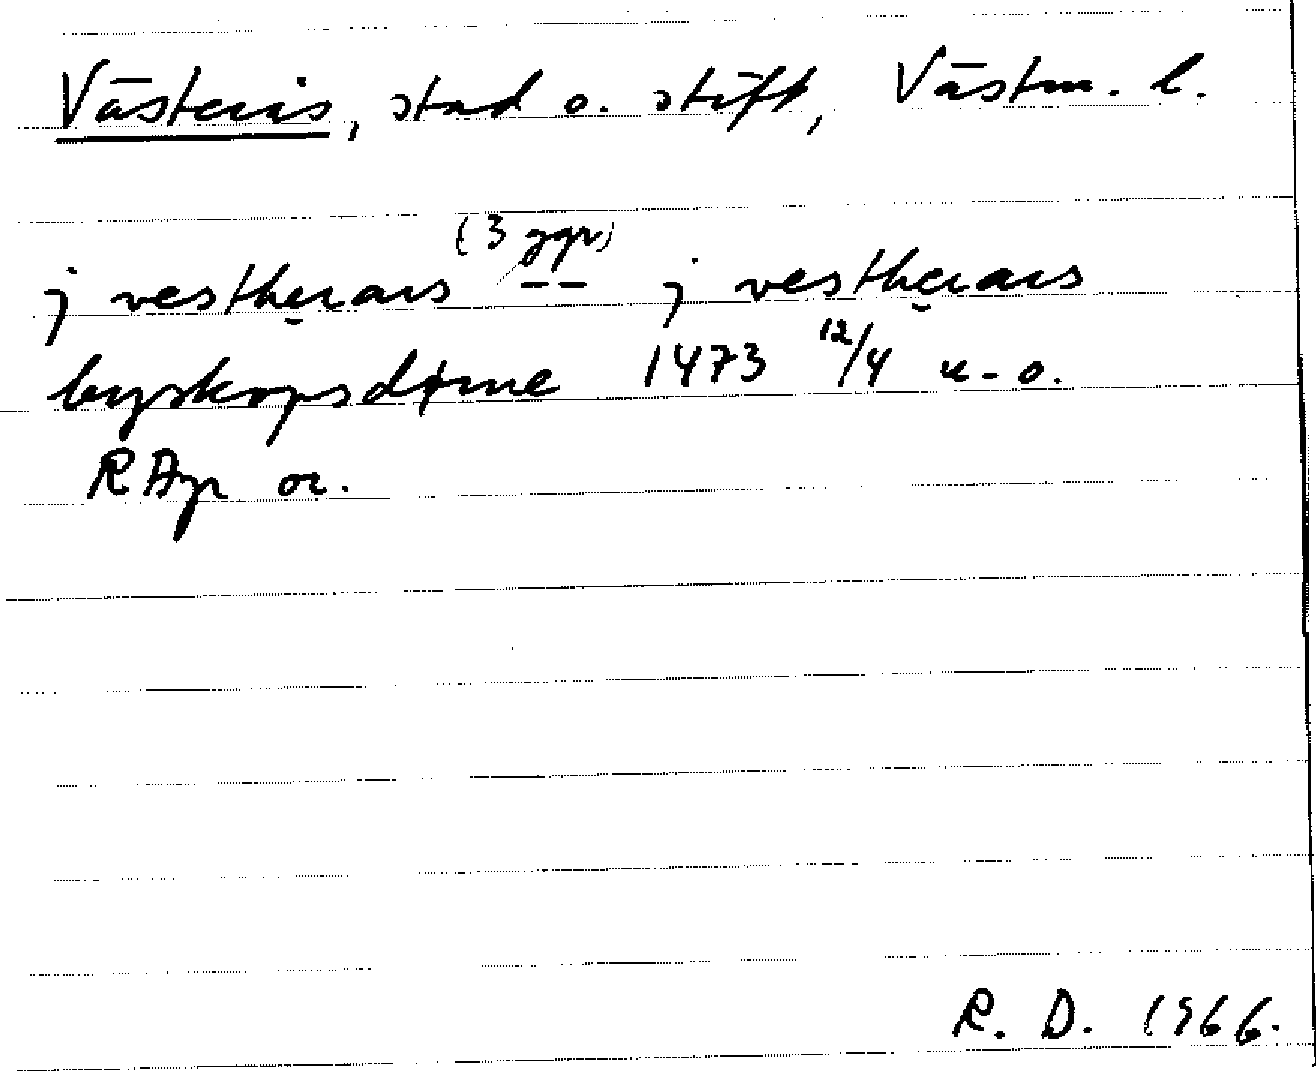 Västerås, stad o. stift, Västm. l.
(3 ggr)
j vestherars -- j vestherars
byskopsdøme 1473 12/4 u.o.
RAp or.
R. D. 1966.